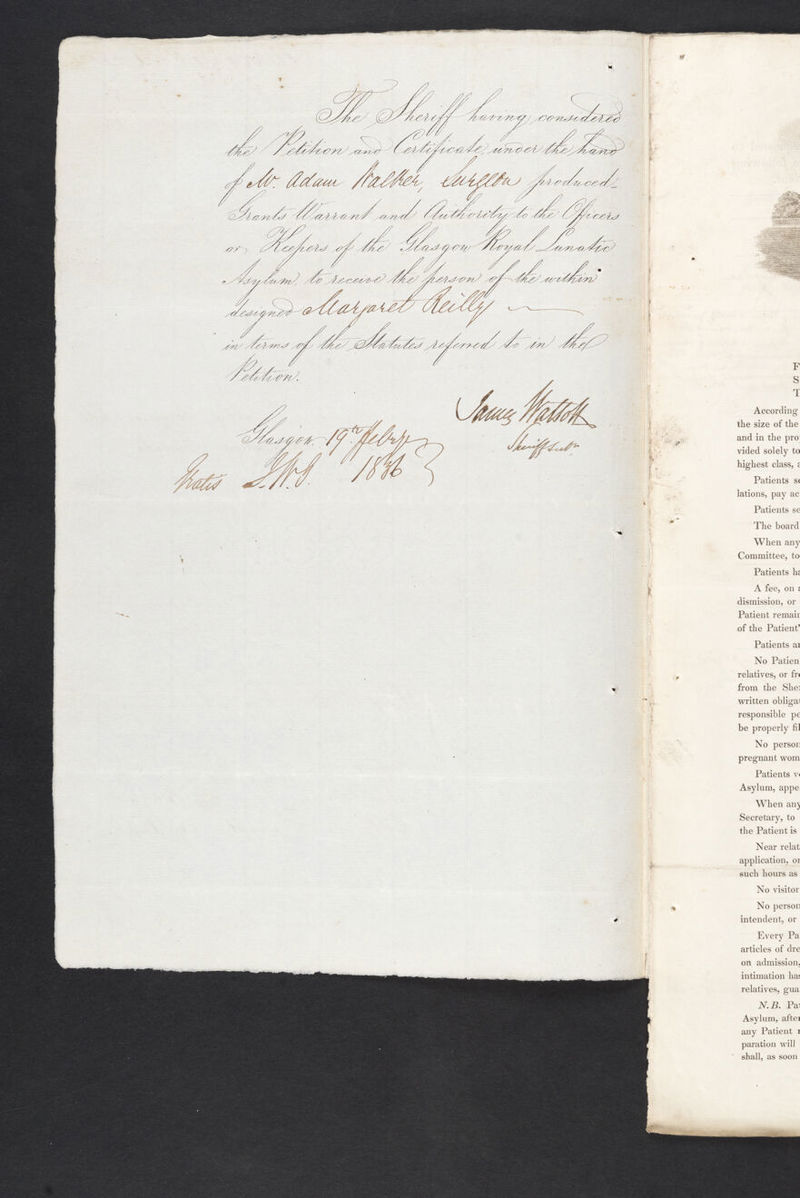 The Sheriff having considered
the Petition and Certificate under the hand
of Mr. Adam Walker, Surgeon produced
Grants Warrant and Authority to the Officers
or Keepers of the Glasgow Royal Lunatic
Asylum, to receive the person of the within
designed Margaret Reilly
in terms of the Statutes referred to in the
Petition.
James Watson
Sheriff Subt
Glasgow 19th Febry
Gratis J.W.S. 1836
F
S
T
According
the size of the
and in the pro
vided solely to
highest class, a
Patients se
lations, pay ac
Patients se
The board
When any
Committee, to
Patients ha
A fee, on a
dismission, or
Patient remain
of the Patient'
Patients ar
No Patien
relatives, or fr
from the She
written obliga
responsible pe
be properly fil
No person
pregnant wom
Patients v
Asylum, appe
When any
Secretary, to
the Patient is
Near relat
application, or
such hours as
No visitor
No person
intendent, or
Every Pa
articles of dre
on admission,
intimation has
relatives, gua
N.B. Pa
Asylum, after
any Patient r
paration will
shall, as soon